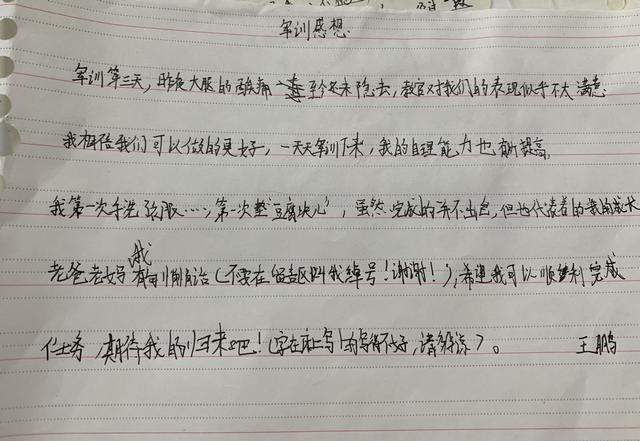 军训感想
军训第三天,昨夜大腿的酸痛至今还未隐去,教官对我们的表现似乎不大满意
我相信我们可以做的更好,一天天军训下来,我的自理能力也有所提高,
我第一次手洗衣服……,第一次整"豆腐块儿",虽然完成的并不出色,但也代表着的我的成长
老爸老妈我(不要在留言区叫我绰号!谢谢!),希望我可以顺利完成
任务,期待我的归来吧!(字在床上写的写得不好,请多谅)。 王鹏